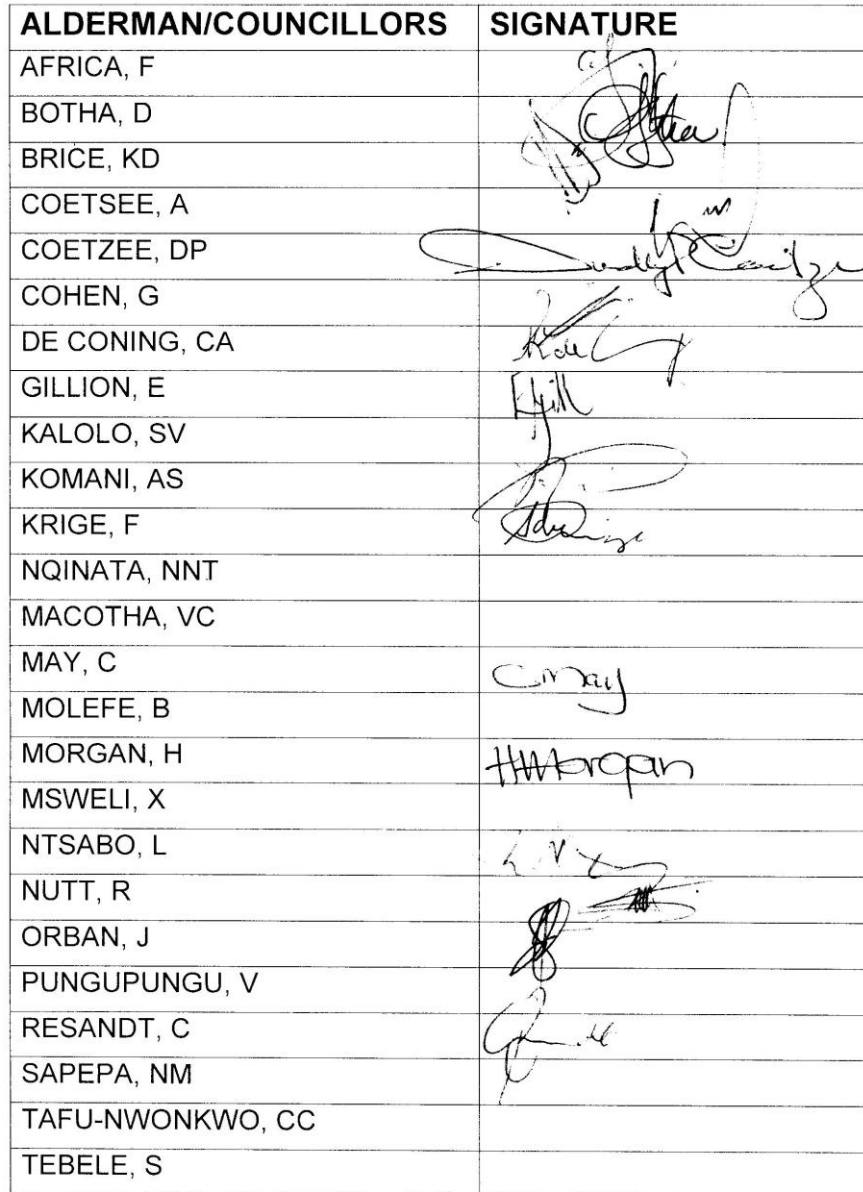 ALDERMAN/COUNCILLORS SIGNATURE
AFRICA, F
BOTHA, D
BRICE, KD
COETSEE, A
COETZEE, DP
COHEN, G
DE CONING, CA
GILLION, E
KALOLO, SV
KOMANI, AS
KRIGE, F
NQINATA, NNT
MACOTHA, VC
MAY, C CMay
MOLEFE, B
MORGAN, H HMorgan
MSWELI, X
NTSABO, L
NUTT, R
ORBAN, J
PUNGUPUNGU, V
RESANDT, C
SAPEPA, NM
TAFU-NWONKWO, CC
TEBELE, S